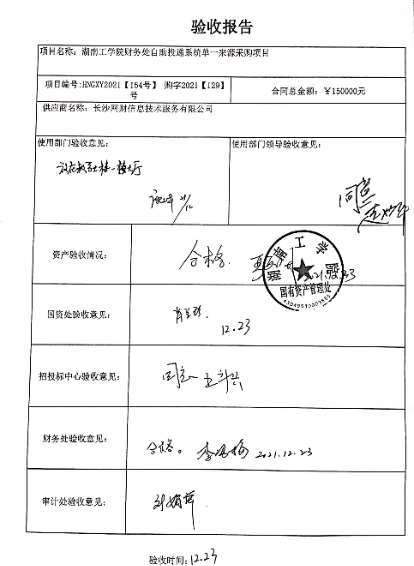 验收报告
项目名称：湖南工学院财务处自助投递系统单一来源采购项目
项目编号:HNGXY2021【154号】 购字2021【129】号
合同总金额：￥150000元
供应商名称：长沙网财信息技术服务有限公司
使用部门验收意见：
使用部门领导验收意见：
同意
资产验收情况：
合格.
湖南工学院
国有资产管理处
国资处验收意见：
12.23
招投标中心验收意见：
同意
财务处验收意见：
合格。
2021.12.23
审计处验收意见：
验收时间：12.23